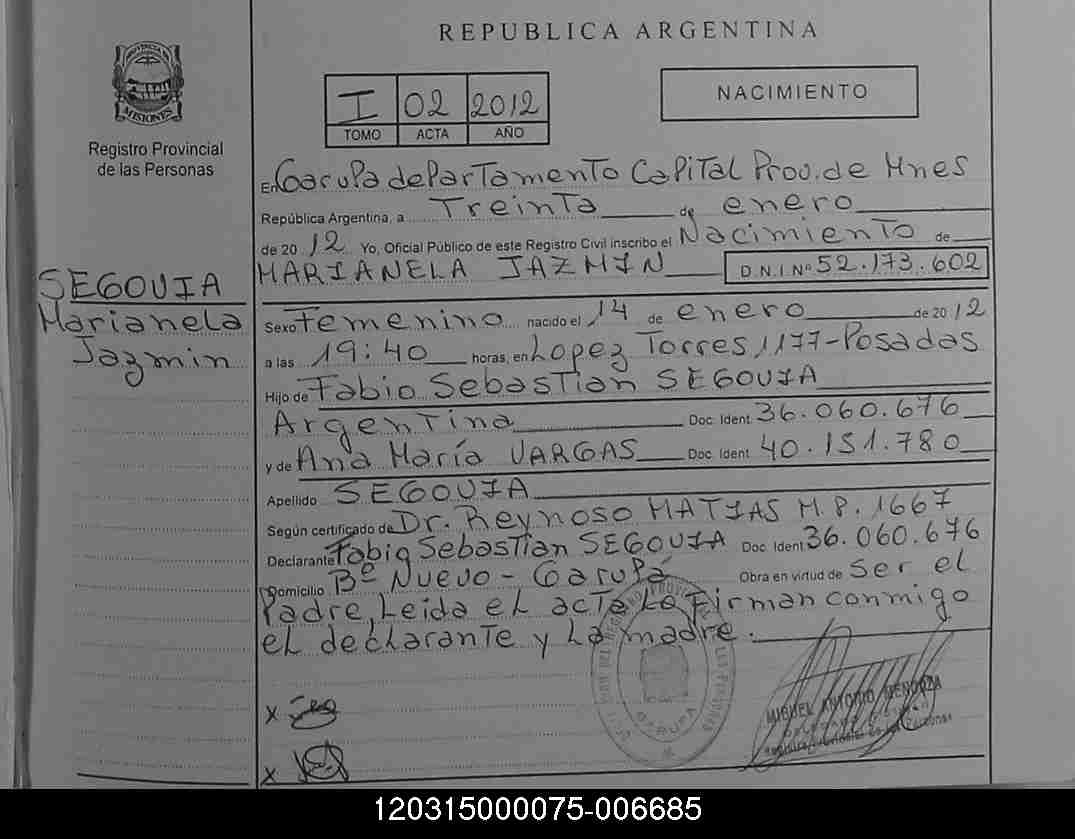 REPUBLICA ARGENTINA
PROVINCIA DE
MISIONES
Registro Provincial
de las Personas
I 02 2012
TOMO ACTA AÑO
NACIMIENTO
En Garupa departamento Capital Prov. de Mnes
República Argentina, a Treinta de enero
de 20 12 Yo, Oficial Público de este Registro Civil inscribo el Nacimiento de
MARIANELA JAZMIN D.N.I. Nº 52.173.602
SEGOVIA
Marianela
Jazmin
Sexo Femenino nacido el 14 de enero de 20 12
a las 19:40 horas, en Lopez Torres, 1177-Posadas
Hijo de Fabio Sebastian SEGOVIA
Argentina Doc. Ident. 36.060.676
y de Ana María VARGAS Doc. Ident. 40.151.780
Apellido SEGOVIA
Según certificado de Dr. Reynoso MATIAS M.P. 1667
Declarante Fabio Sebastian SEGOVIA Doc. Ident. 36.060.676
Domicilio Bº Nuevo - Garupá Obra en virtud de ser el
Padre, Leida el acta La Firman conmigo
el declarante y La madre.
GARUPA
MIGUEL ANTONIO MENDOZA
X
X
120315000075-006685